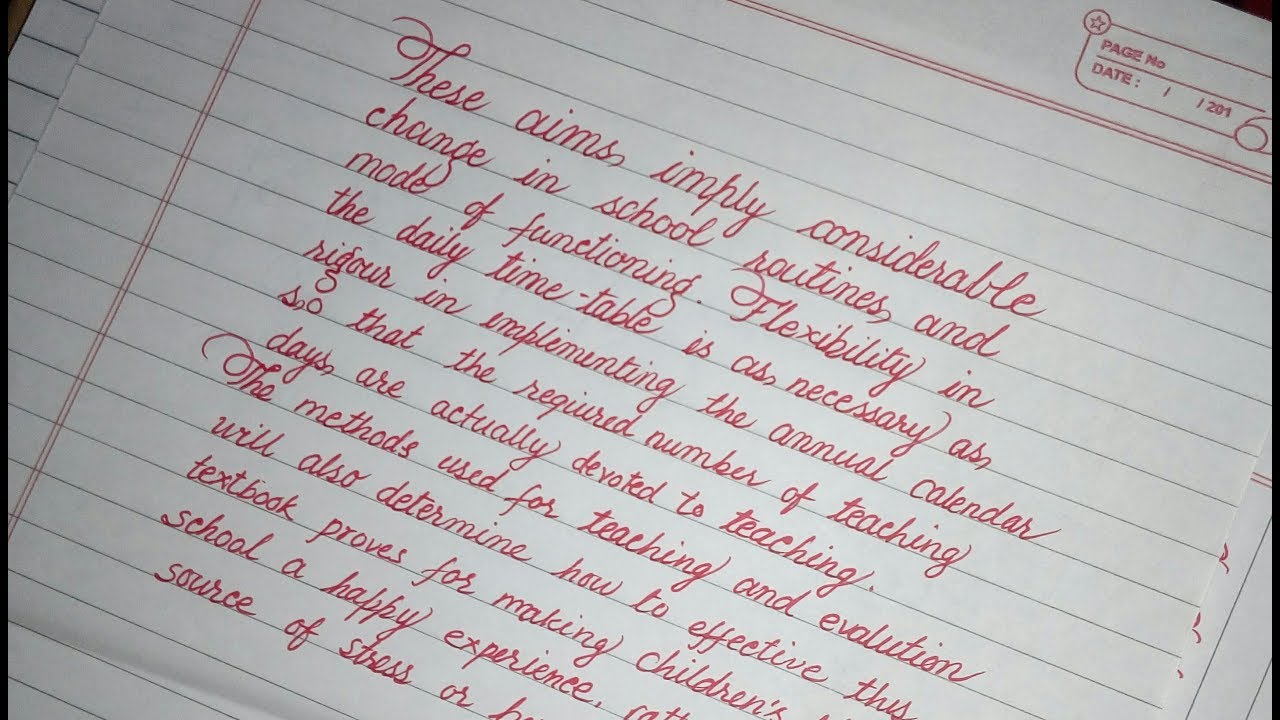 PAGE No
DATE : / / 201
These aims, imply considerable
change in school routines, and
mode of functioning. Flexibility in
the daily time-table is as, necessary as,
rigour in implementing the annual calendar
s,o that the regiured number of teaching
days, are actually devoted to teaching.
The methods, used for teaching and evalution
will also determine how to effective this
textbook proves for making children's
school a happy experience,
source of stress or